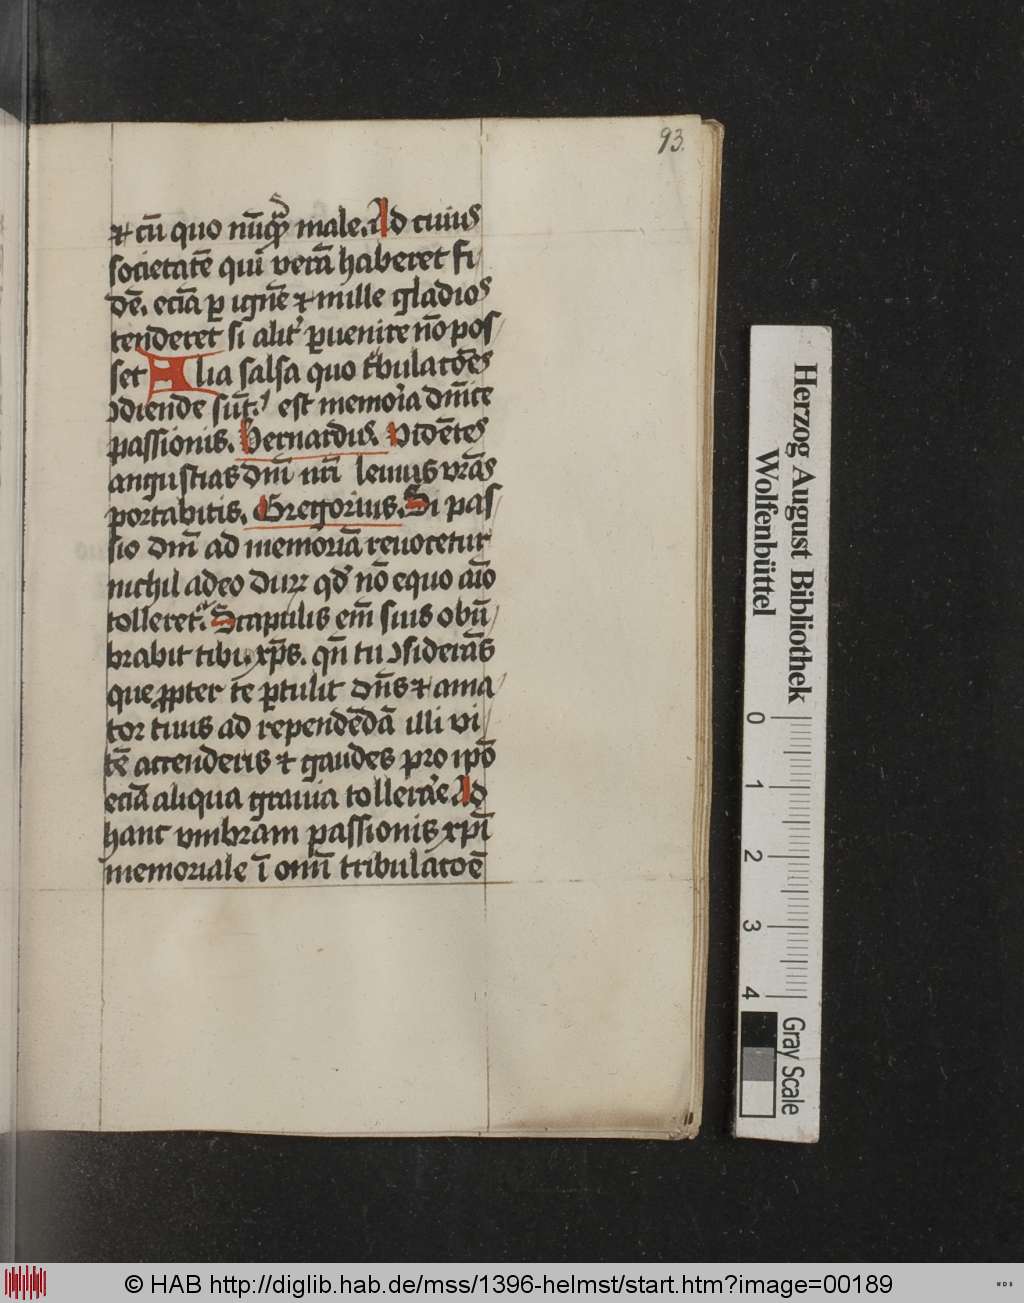 93.
⁊ cū quo nūqᷓ male. Ad cuius
societatē qui verā haberet fi/
dē. eciā ꝑ ignē ⁊ mille gladios
tenderet si alit᷑ ꝑuenire nō pos/
set Alia salsa quo tͥbulacōēs
ꝯdiende sūt. est memoria dmīce
passionis. Bernardus. Vidētes
angustias dnī nrī leuius vrās
portabitis. Gregorius. Si pas/
sio dnī ad memoriā reuocetur
nichil adeo duꝝ qđ nō equo aīo
tolleret᷑. Scapulis em̄ suis obū/
brabit tibi xp̄s. qn̄ tu ꝯsiderās
que ꝓpter te ꝑtulit dn̄s ⁊ ama/
tor tuus ad rependēdā illi vi/
cē accenderis ⁊ gaudes pro ip̄o
eciā aliqua grauia tollerare Ad
hanc vmbram passionis xpī
memoriale ī omī tribulacōē
Herzog August Bibliothek
Wolfenbüttel
0 1 2 3 4
Gray Scale
© HAB http://diglib.hab.de/mss/1396-helmst/start.htm?image=00189
WDB